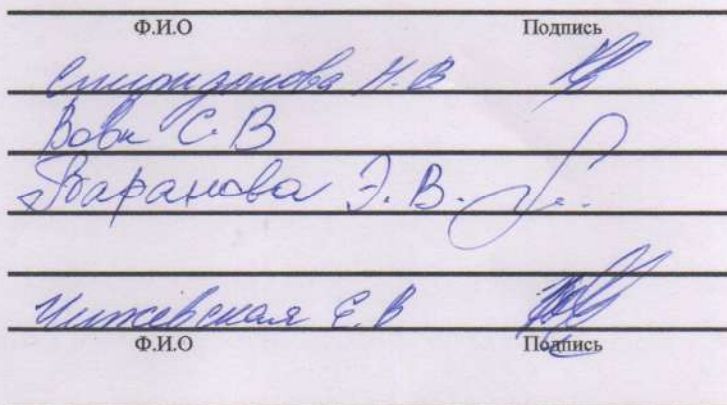 Ф.И.О Подпись
Спиридонова Н.В
Вовк С.В
Баранова Э.В.
Чижевская Е.В
Ф.И.О Подпись